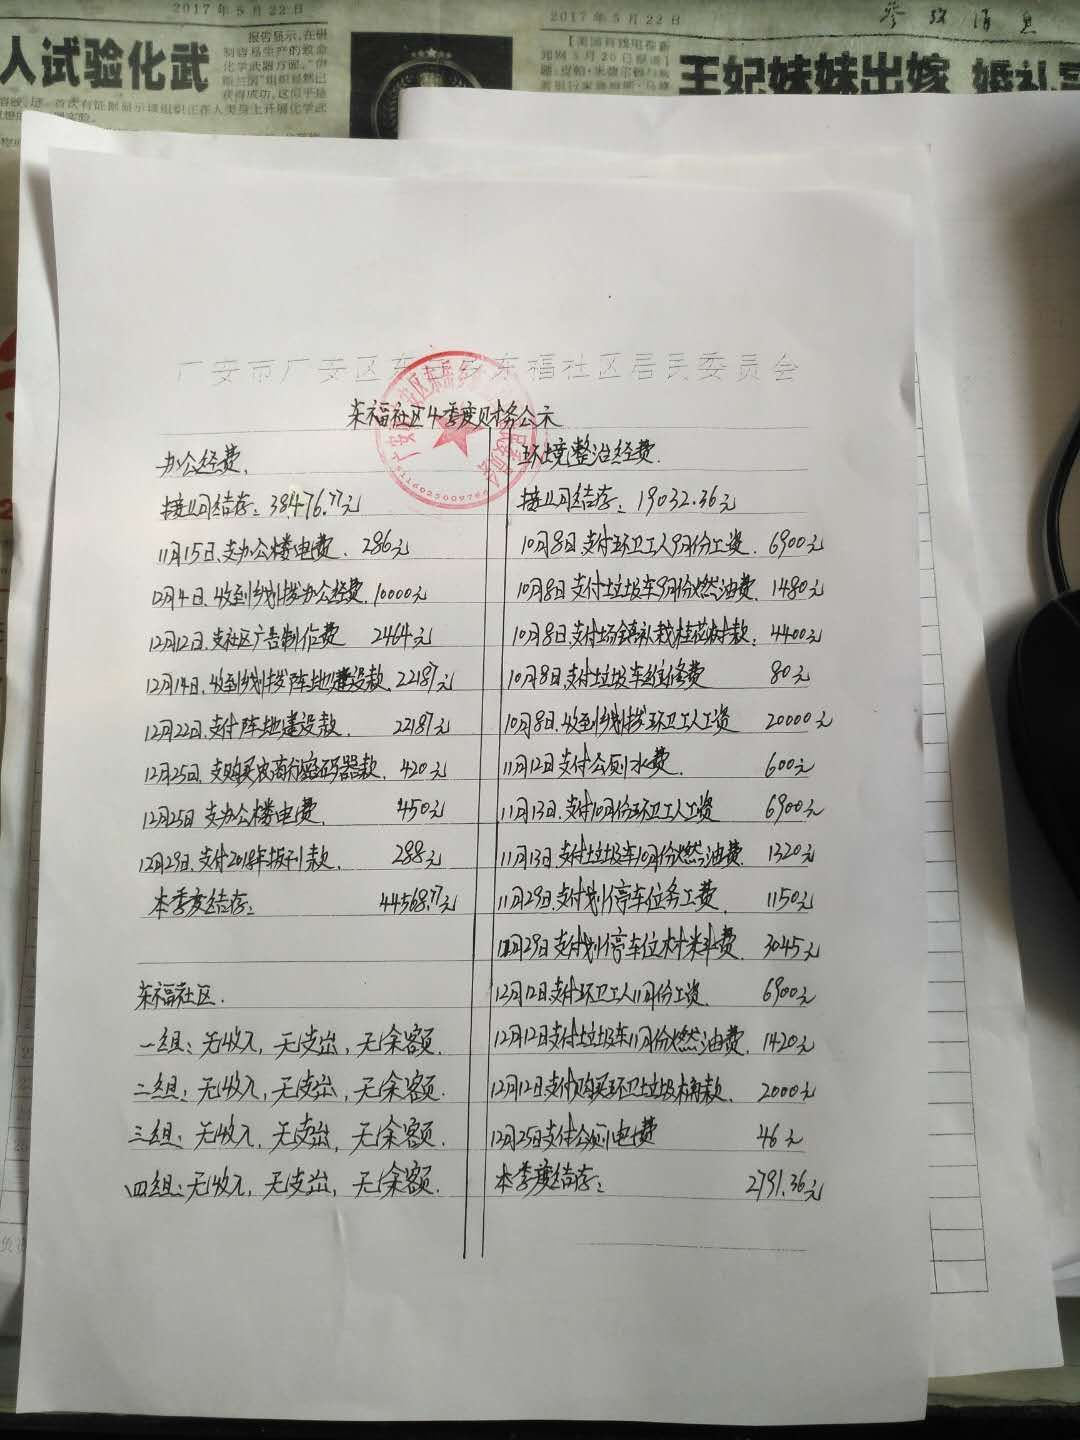 2017年5月22日
2017年5月22日
参考消息
人试验化武
王妃妹妹出嫁 婚礼
广安市广安区东岳乡东福社区居民委员会
东福社区4季度财务公示
办公经费
接上季结存:38476.77元
11月15日、支办公楼电费. 286元
12月4日、收到划拨办公经费. 10000元
12月12日、支社区广告制作费 2464元
12月14日、收到划拨阵地建设款. 22187元
12月22日、支付阵地建设款 22187元
12月25日、支购买农商行密码器款. 420元
12月25日 支办公楼电费. 450元
12月29日、支付2018年报刊款. 288元
本季度结存: 44568.77元
东福社区.
一组:无收入,无支出,无余额.
二组:无收入,无支出,无余额.
三组:无收入,无支出,无余额.
四组:无收入,无支出,无余额.
环境整治经费.
接上季结存:19032.36元
10月8日、支付环卫工人9月份工资. 6900元
10月8日、支付垃圾车9月份燃油费. 1480元
10月8日、支付场镇补栽桂花树款: 4400元
10月8日、支付垃圾车维修费 80元
10月8日、收到划拨环卫工人工资 20000元
11月12日支付公厕水费. 600元
11月13日、支付10月份环卫工人工资 6900元
11月13日、支付垃圾车10月份燃油费. 1320元
11月29日、支付划停车位务工费. 1150元
11月29日支付划停车位材料费. 3045元
12月12日、支付环卫工人11月份工资. 6900元
12月12日支付垃圾车11月份燃油费. 1420元
12月12日支付购买环卫垃圾桶款. 2000元
12月25日支付公厕电费 46元
本季度结存: 2791.36元